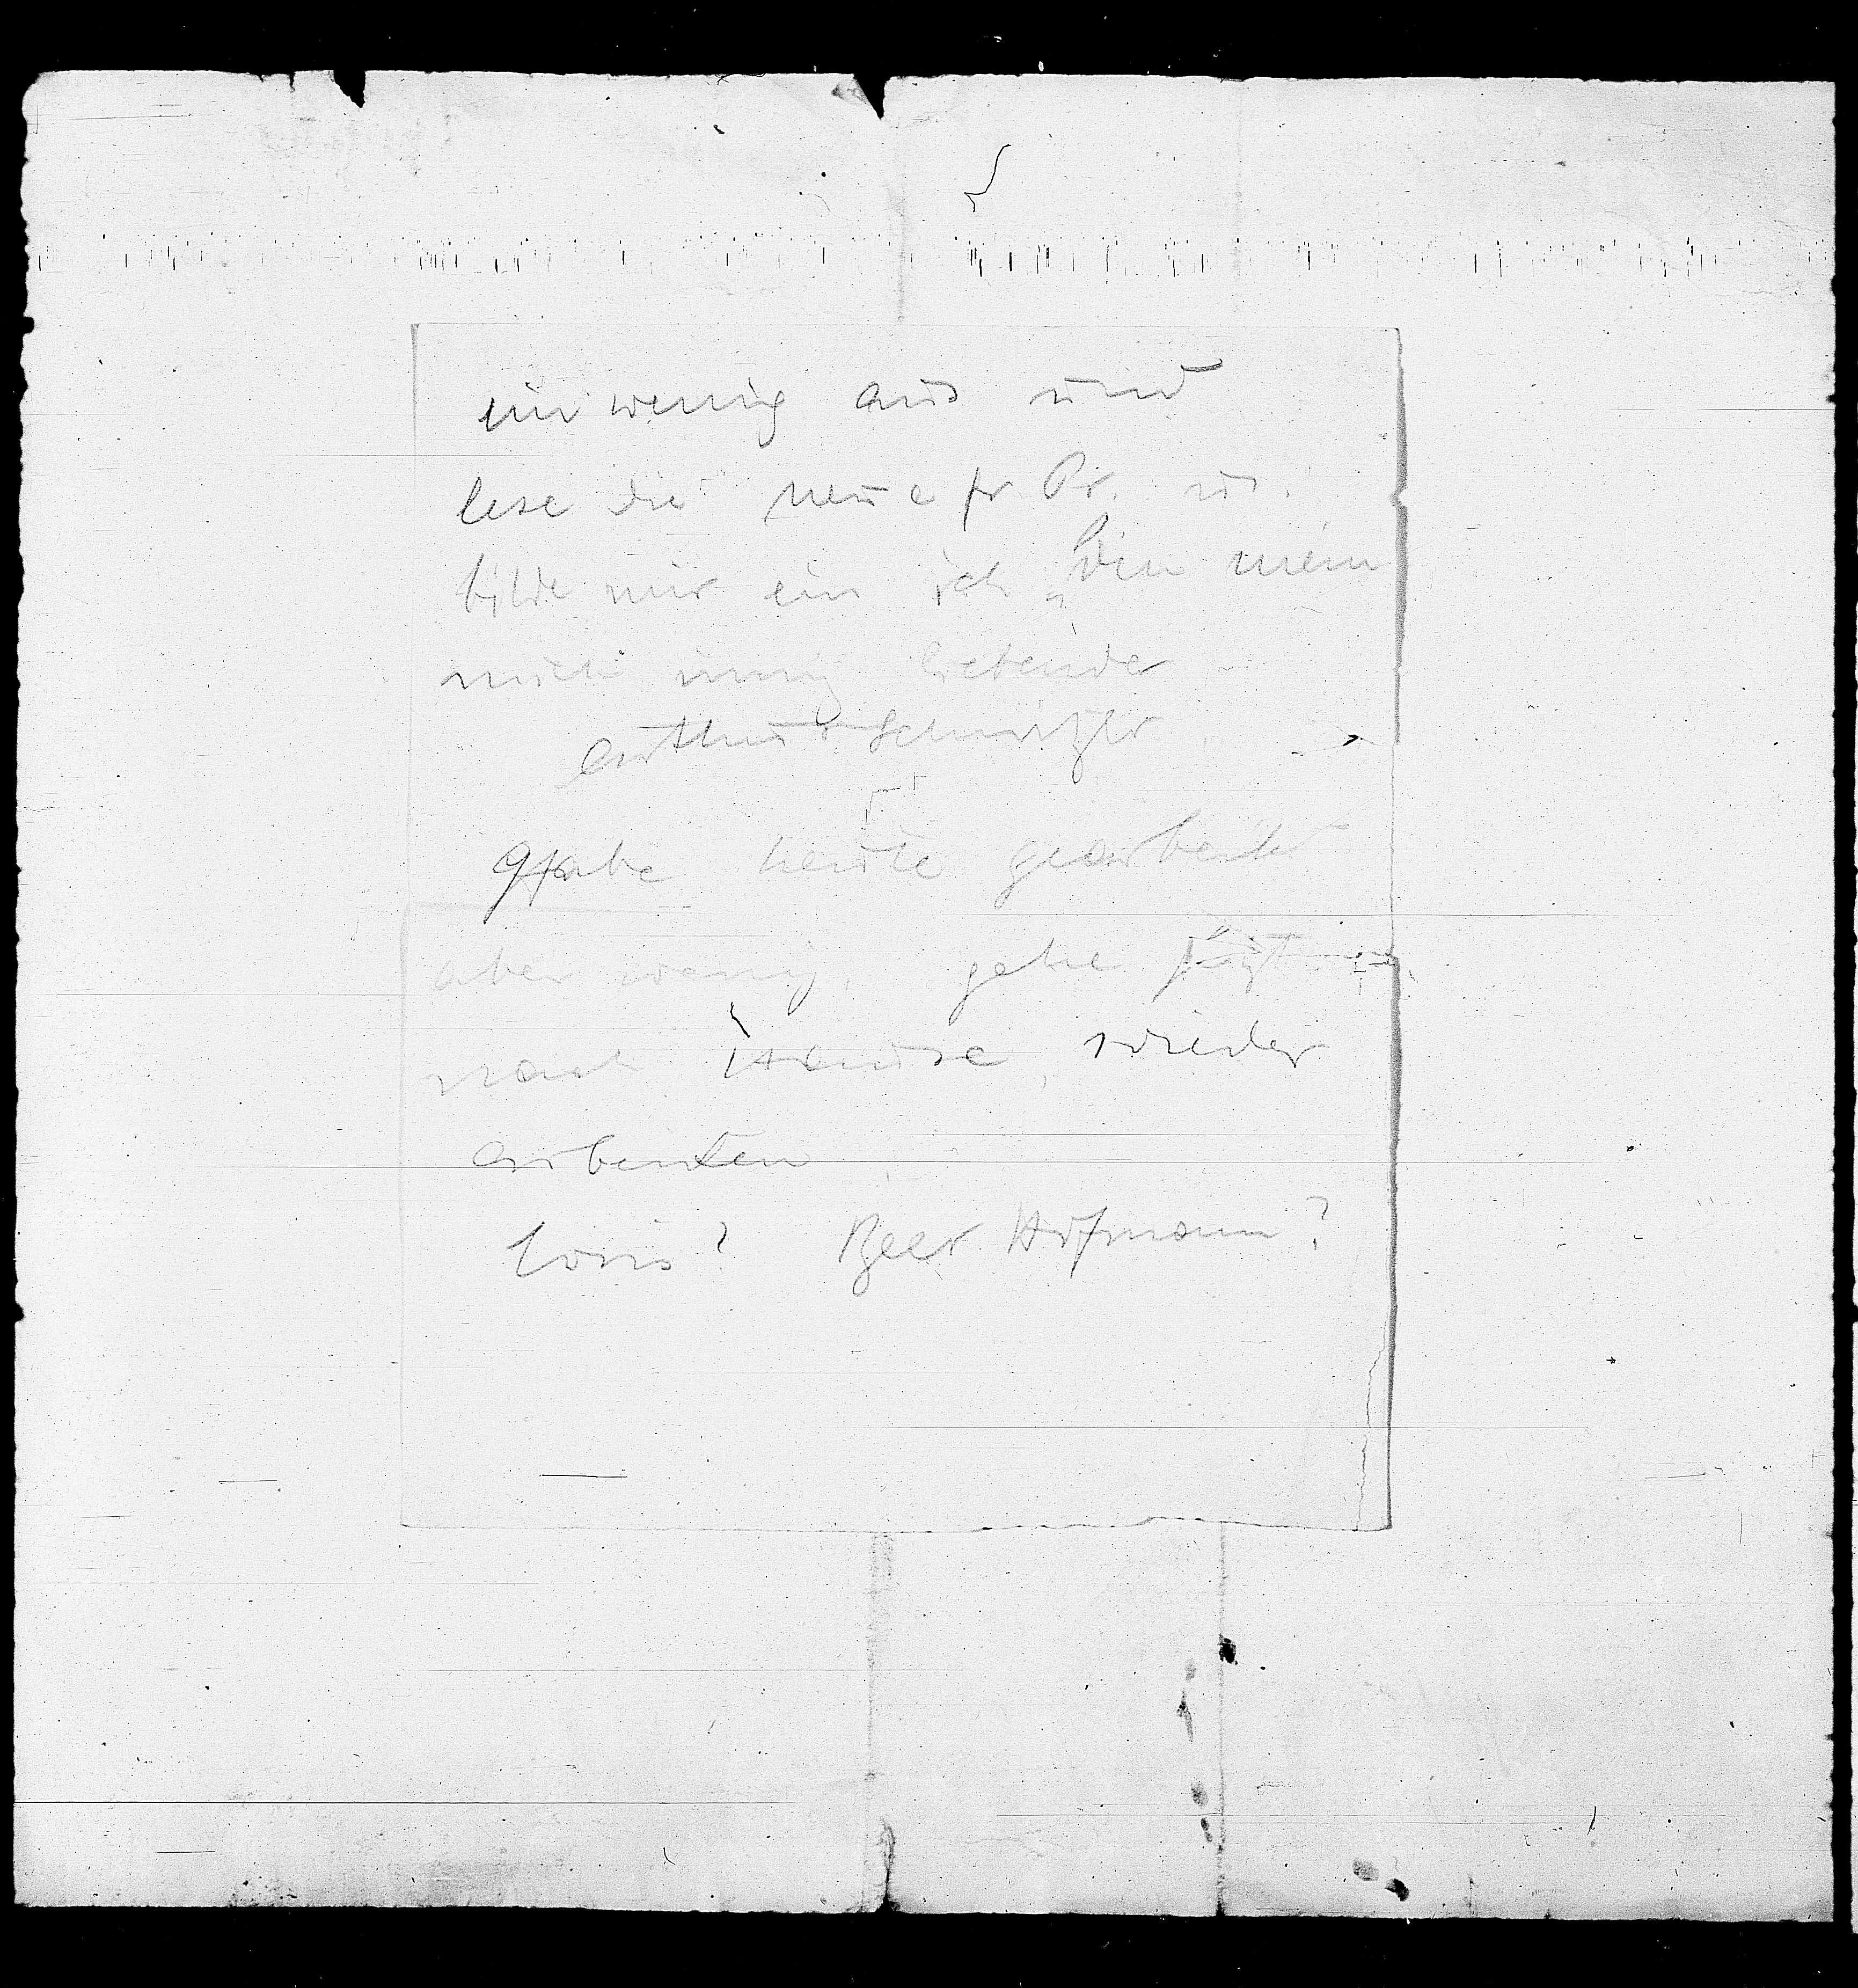 ein wenig aus und
lese die neue fr. Pr. u.
bilde mir ein ich bin mein
mich innig liebender
Arthur Schnitzler
Habe heute gearbeitet
aber wenig, gehe jetzt
nach Hause, wieder
arbeiten
Loris? Beer Hofmann?